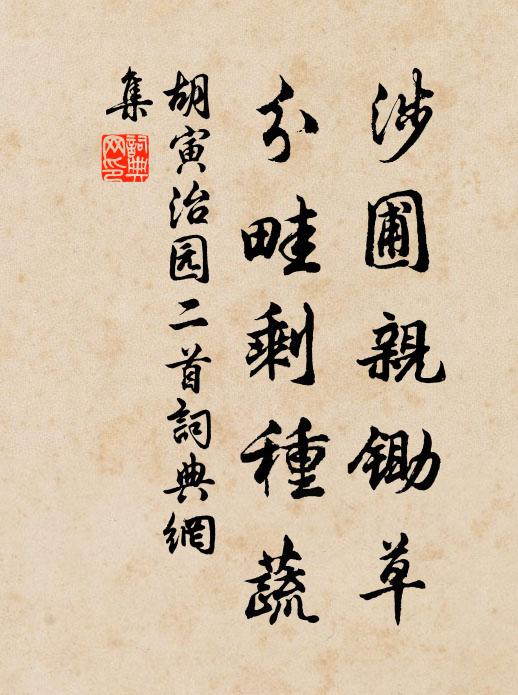 涉圃親鋤草
分畦剩種蔬
胡寅治园二首詞典網
集
詞典
网印